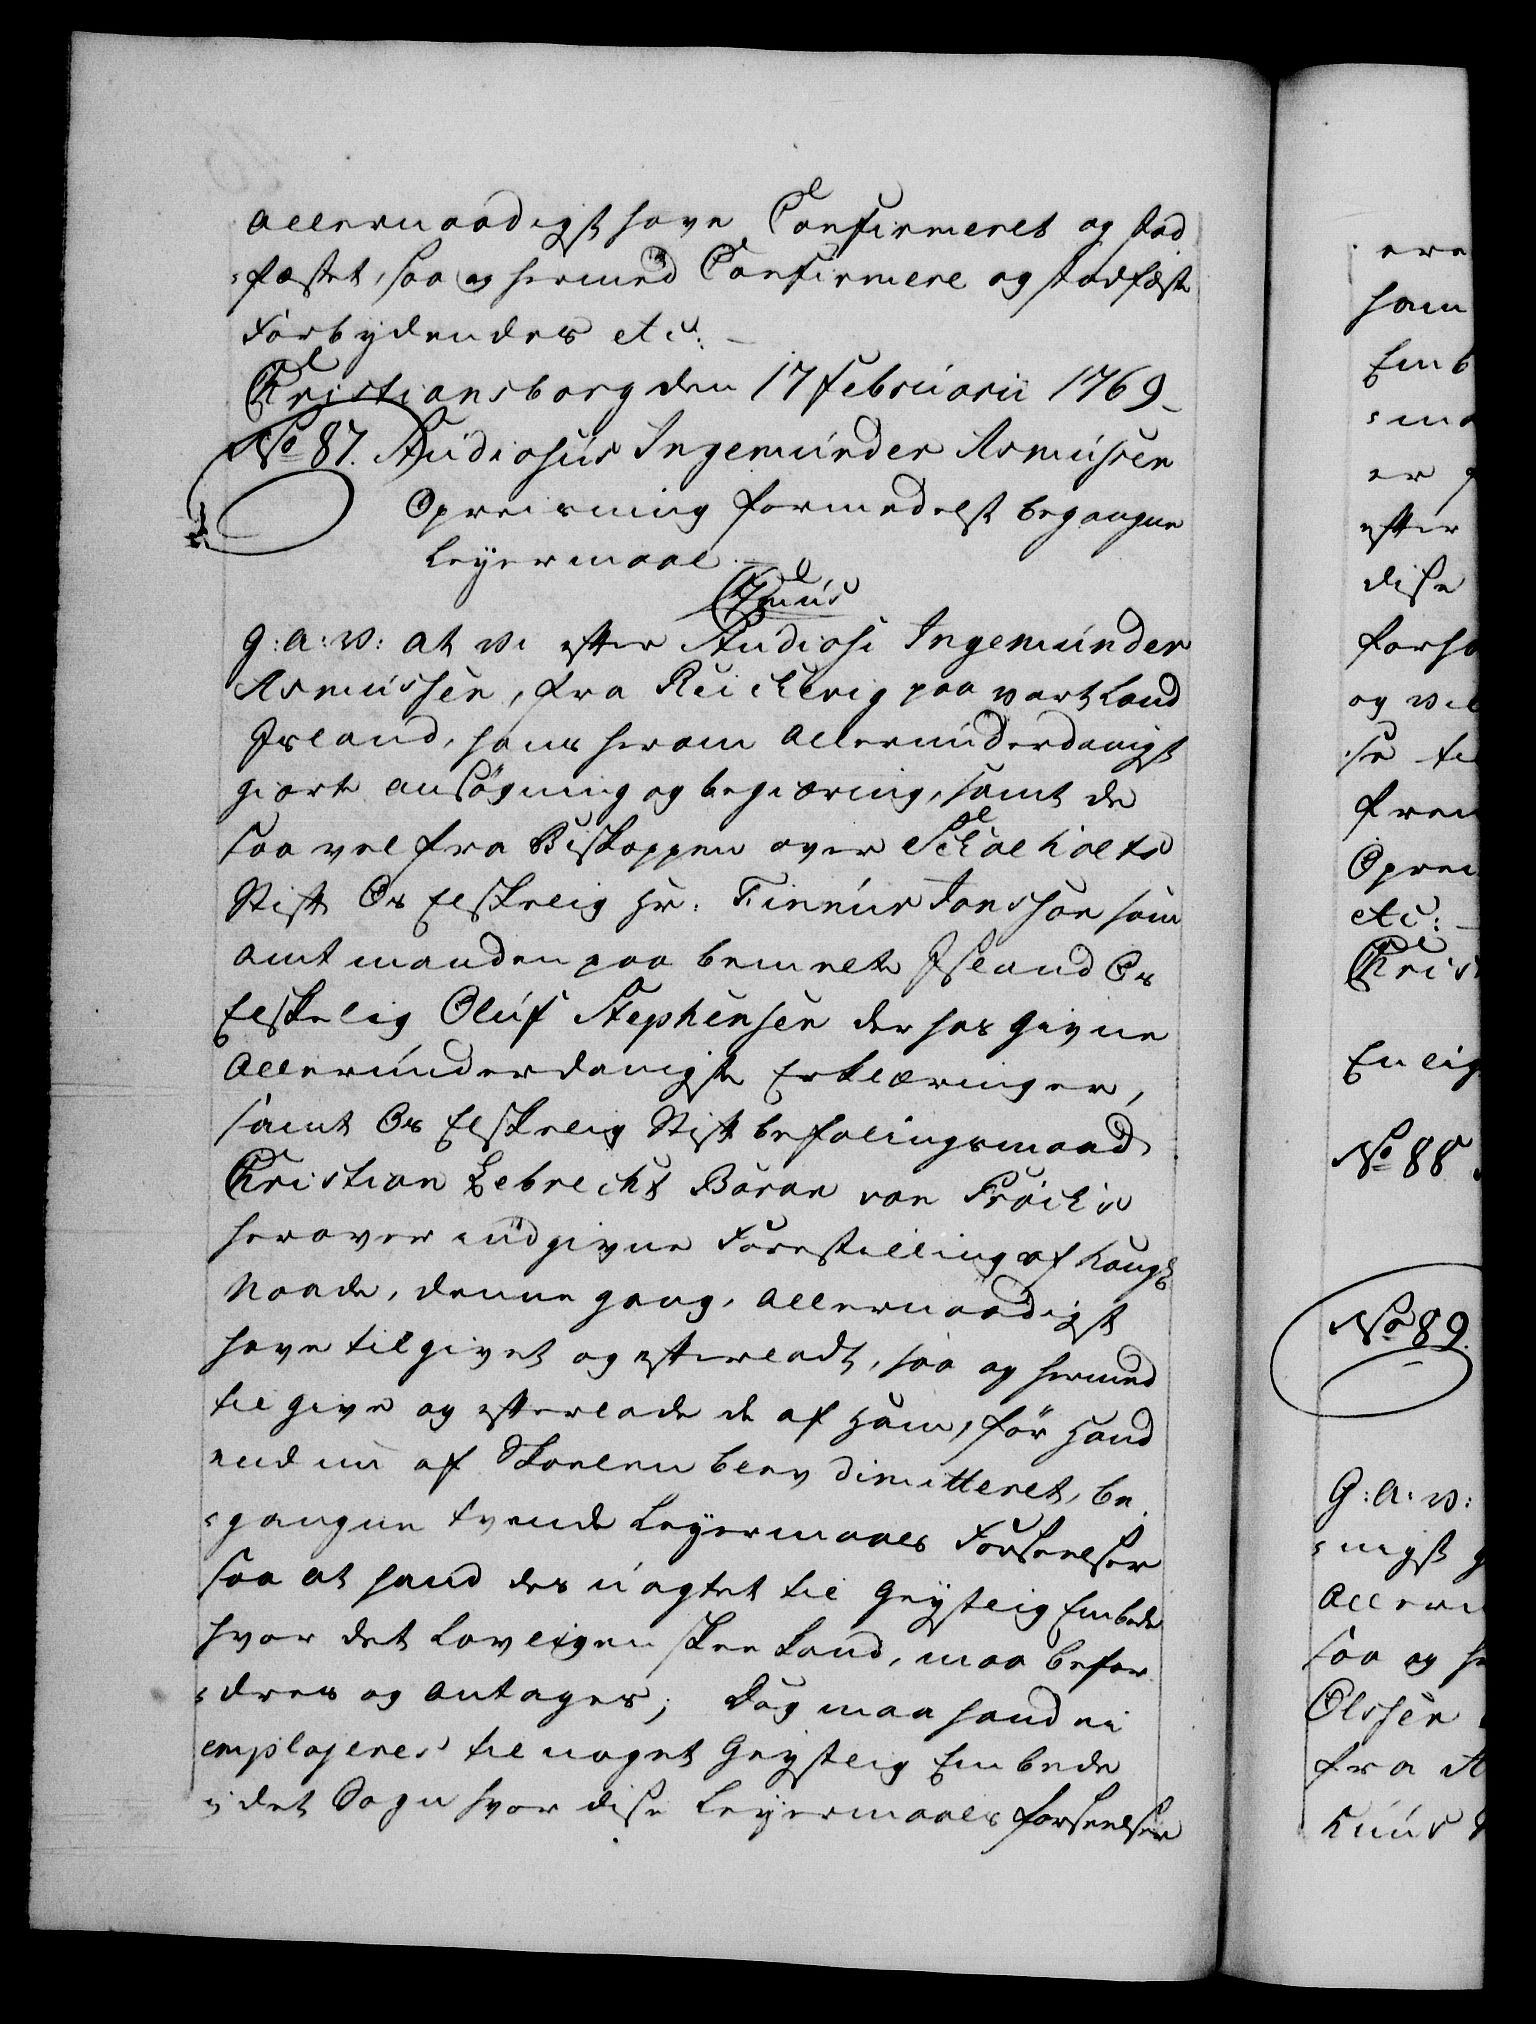 allernaadigst have Confirmeret og stad
=fæstet, saa og hermed Confirmere og stadfæste
Forbydendes etc: –
Christiansborg den 17 Februarii 1769–
No 87. Studiosus Ingemunder Asmussen
Opreisning formedelst begangne
Leyermaal. –
C7mus
G: A: V: at Vi efter Studiosi Ingemunder
Asmussen, fra Reickevig paa vort Land
Island, hans herom allerunderdanigst
giorte ansøgning og begiæring, samt de
saa vel fra Biskoppen over Schalholts
Stift Os Elskelig Hr: Finnur Jonsson som
amtmanden paa bemelte Island Os
Elskelig Oluf Stephensen der hos givne
allerunderdanigste Erklæringer,
samt Os Elskelig Stiftbefalingsmand
Christian Lebrecht Baron von Prøcks
herover indgivne Forestilling af Kongl:
Naade, denne gang, allernaadigst
have tilgivet og efterladt, saa og hermed
tilgive og efterlade de af Ham, før Hand
endnu af Skoelen blev dimitteret, be
=gangne tvende Leyermaals Forseelser
saa at hand des uagtet til Geystlig Embede
hvor det Lovligen skee kand, maa befor
=dres og antages; Dog maa hand ei
emplojeres til noget Geystlig Embede
i det Sogn hvor disse Leyermaals forseelser
ere
ham
Emb
=ma
er
efter
disse
forse
og vel
Oprei
etc: –
Chris
Enlig
No 88
No 89.
G: A: V:
=nigst g
Aller
saa og he
Olssen
fra